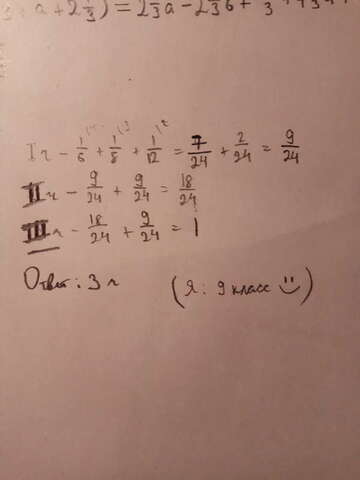 a + 2 1/3) = 2 1/3 a - 2 1/3 б +
I ч - 1/6 + 1/8 + 1/12 = 7/24 + 2/24 = 9/24
II ч - 9/24 + 9/24 = 18/24
III ч - 18/24 + 9/24 = 1
Ответ: 3 ч (Я: 9 класс :))